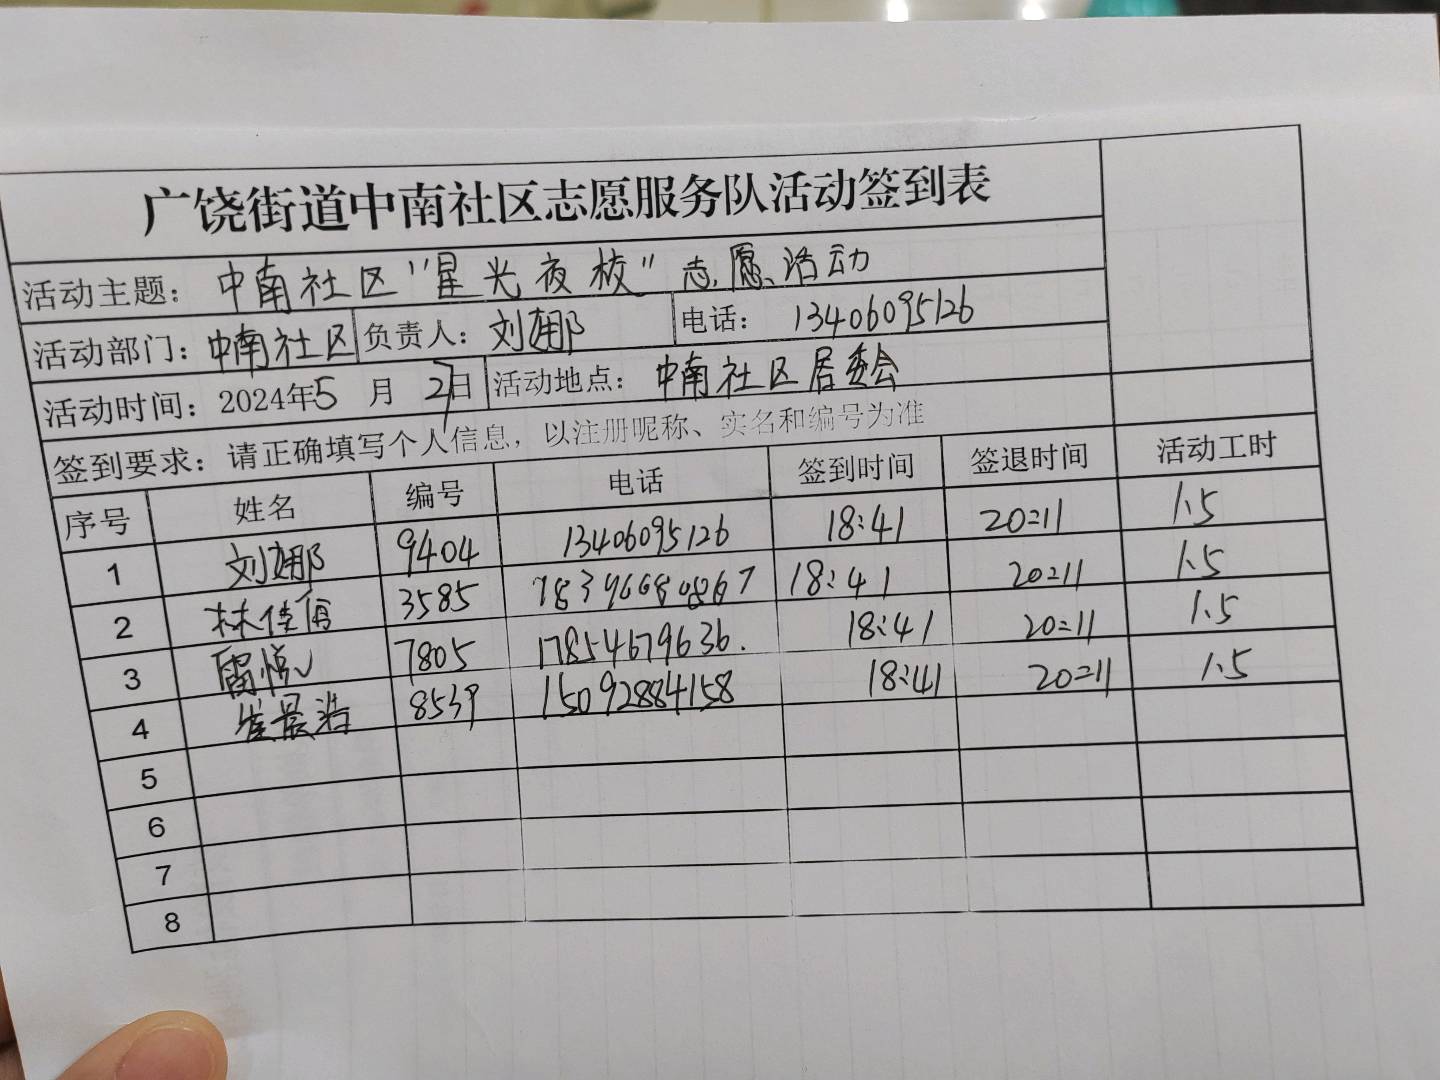 广饶街道中南社区志愿服务队活动签到表
活动主题：中南社区“星光夜校”志愿活动
活动部门：中南社区 负责人：刘娜 电话：13406095126
活动时间：2024年5月27日 活动地点：中南社区居委会
签到要求：请正确填写个人信息，以注册昵称、实名和编号为准
序号 姓名 编号 电话 签到时间 签退时间 活动工时
1 刘娜 9404 13406095126 18:41 20:11 1.5
2 林佳 3585 18:41 20:11 1.5
3 悦 7805 17854679636. 18:41 20:11 1.5
4 崔晨浩 8539 15092884158 18:41 20:11 1.5
5
6
7
8